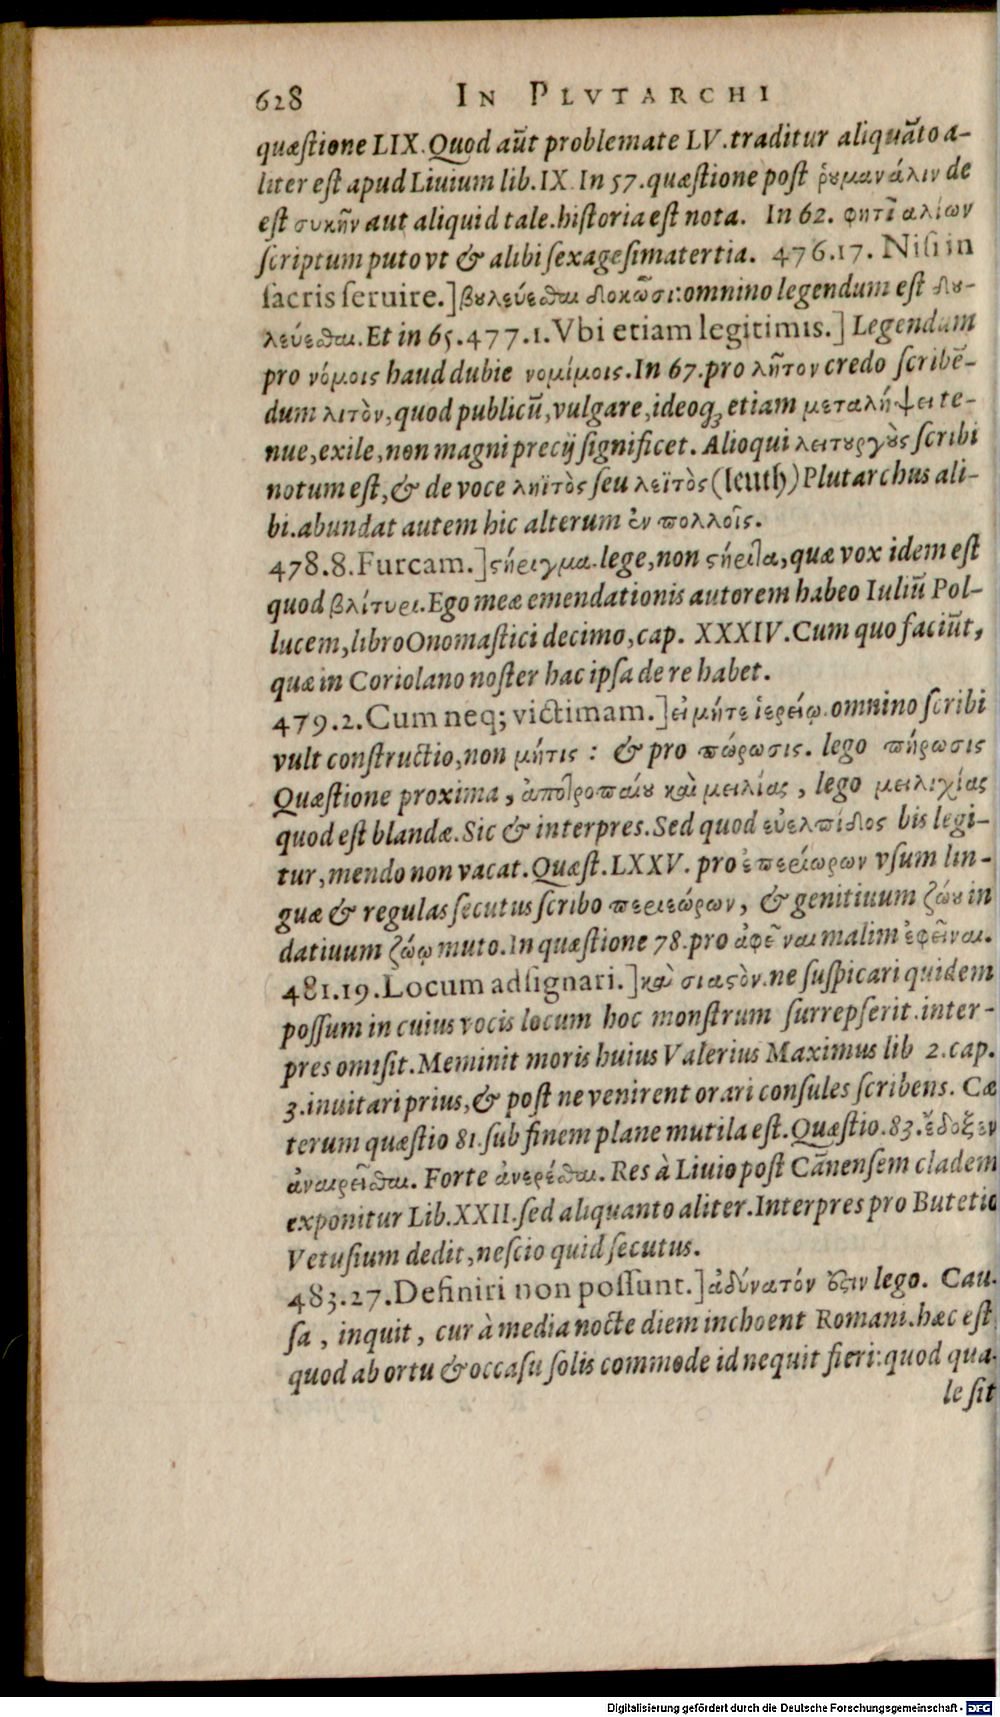 628 IN PLVTARCHI
quæſtione LIX. Quod aūt problemate LV. traditur aliquāto a-
liter eſt apud Liuium lib. IX. In 57. quæſtione poſt ῥυμανάλιν de
eſt συκῆν aut aliquid tale. hiſtoria eſt nota. In 62. φητιαλίων
ſcriptum puto vt & alibi ſexageſima tertia. 476.17. Niſi in
ſacris ſeruire.] βυλεύεσθαι δοκῶσι: omnino legendum eſt δυ-
λεύεσθαι. Et in 65. 477.1. Vbi etiam legitimis.] Legendum
pro νόμοις haud dubie νομίμοις. In 67. pro λῆτον credo ſcribē-
dum λιτὸν, quod publicū, vulgare, ideoq; etiam μεταλήψει te-
nue, exile, non magni precij ſignificet. Alioqui λειτυργὸς ſcribi
notum eſt, & de voce ληϊτὸς ſeu λεϊτὸς (leuth) Plutarchus ali-
bi. abundat autem hic alterum ἐν πολλοῖς.
478.8. Furcam.] ϛήριγμα. lege, non ϛήριλα, quæ vox idem eſt
quod βλίτυρι. Ego meæ emendationis autorem habeo Iuliū Pol-
lucem, libro Onomaſtici decimo, cap. XXXIV. Cum quo faciūt,
quæ in Coriolano noſter hac ipſa de re habet.
479.2. Cum neq; victimam.] εἰ μήτε ἱερείῳ. omnino ſcribi
vult conſtructio, non μήτις: & pro πώρωσις. lego πήρωσις
Quæſtione proxima, ἀποτροπαίυ καὶ μειλίας, lego μειλιχίας
quod eſt blandæ. Sic & interpres. Sed quod εὐελπίδος bis legi-
tur, mendo non vacat. Quæſt. LXXV. pro ἐπερίωρων vſum lin-
guæ & regulas ſecutus ſcribo περιεώρων, & genitiuum ζώυ in
datiuum ζώῳ muto. In quæſtione 78. pro ἀφεῖναι malim ἐφεῖναι.
481.19. Locum adſignari.] καὶ σιαϛὸν. ne ſuſpicari quidem
poſſum in cuius vocis locum hoc monſtrum ſurrepſerit. inter-
pres omiſit. Meminit moris huius Valerius Maximus lib 2. cap.
3. inuitari prius, & poſt ne venirent orari conſules ſcribens. Cæ
terum quæſtio 81. ſub finem plane mutila eſt. Quæſtio. 83. ἔδοξεν
ἀναιρεῖσθαι. Forte ἀνερέσθαι. Res à Liuio poſt Cānenſem cladem
exponitur Lib. XXII. ſed aliquanto aliter. Interpres pro Butetio
Vetuſium dedit, neſcio quid ſecutus.
483.27. Definiri non poſſunt.] ἀδύνατόν ὅϛιν lego. Cau-
ſa, inquit, cur à media nocte diem inchoent Romani. hæc eſt
quod ab ortu & occaſu ſolis commode id nequit fieri: quod qua-
le ſit
Digitalisierung gefördert durch die Deutsche Forschungsgemeinschaft - DFG